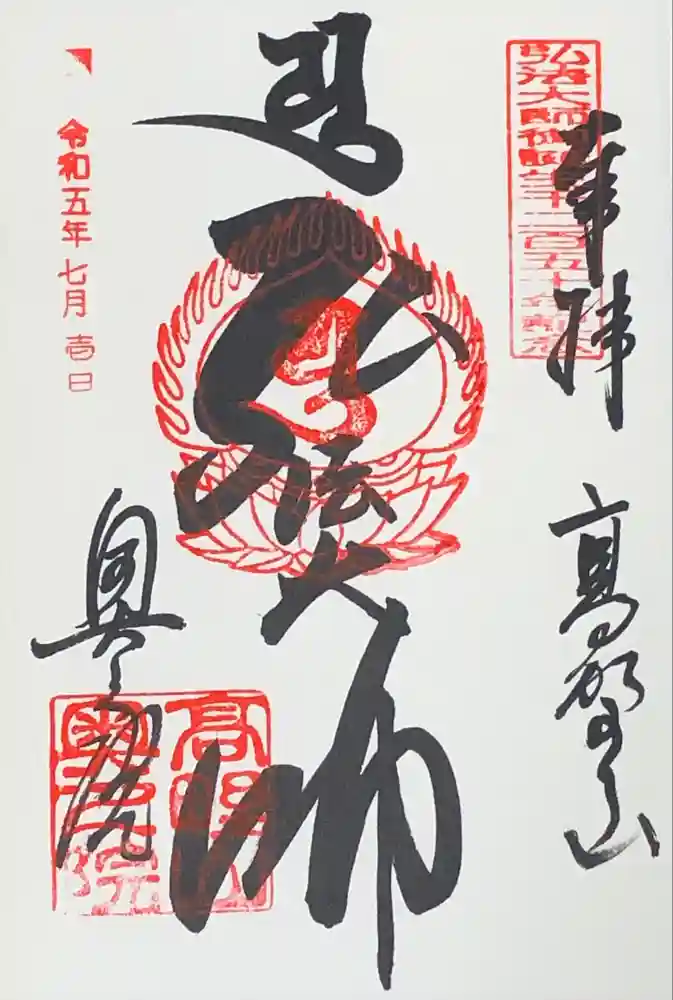 弘法大師御誕生千二百五十年記念
奉拝
高野山
弘法大師
高野山
奥之院
奥之院
令和五年七月壱日